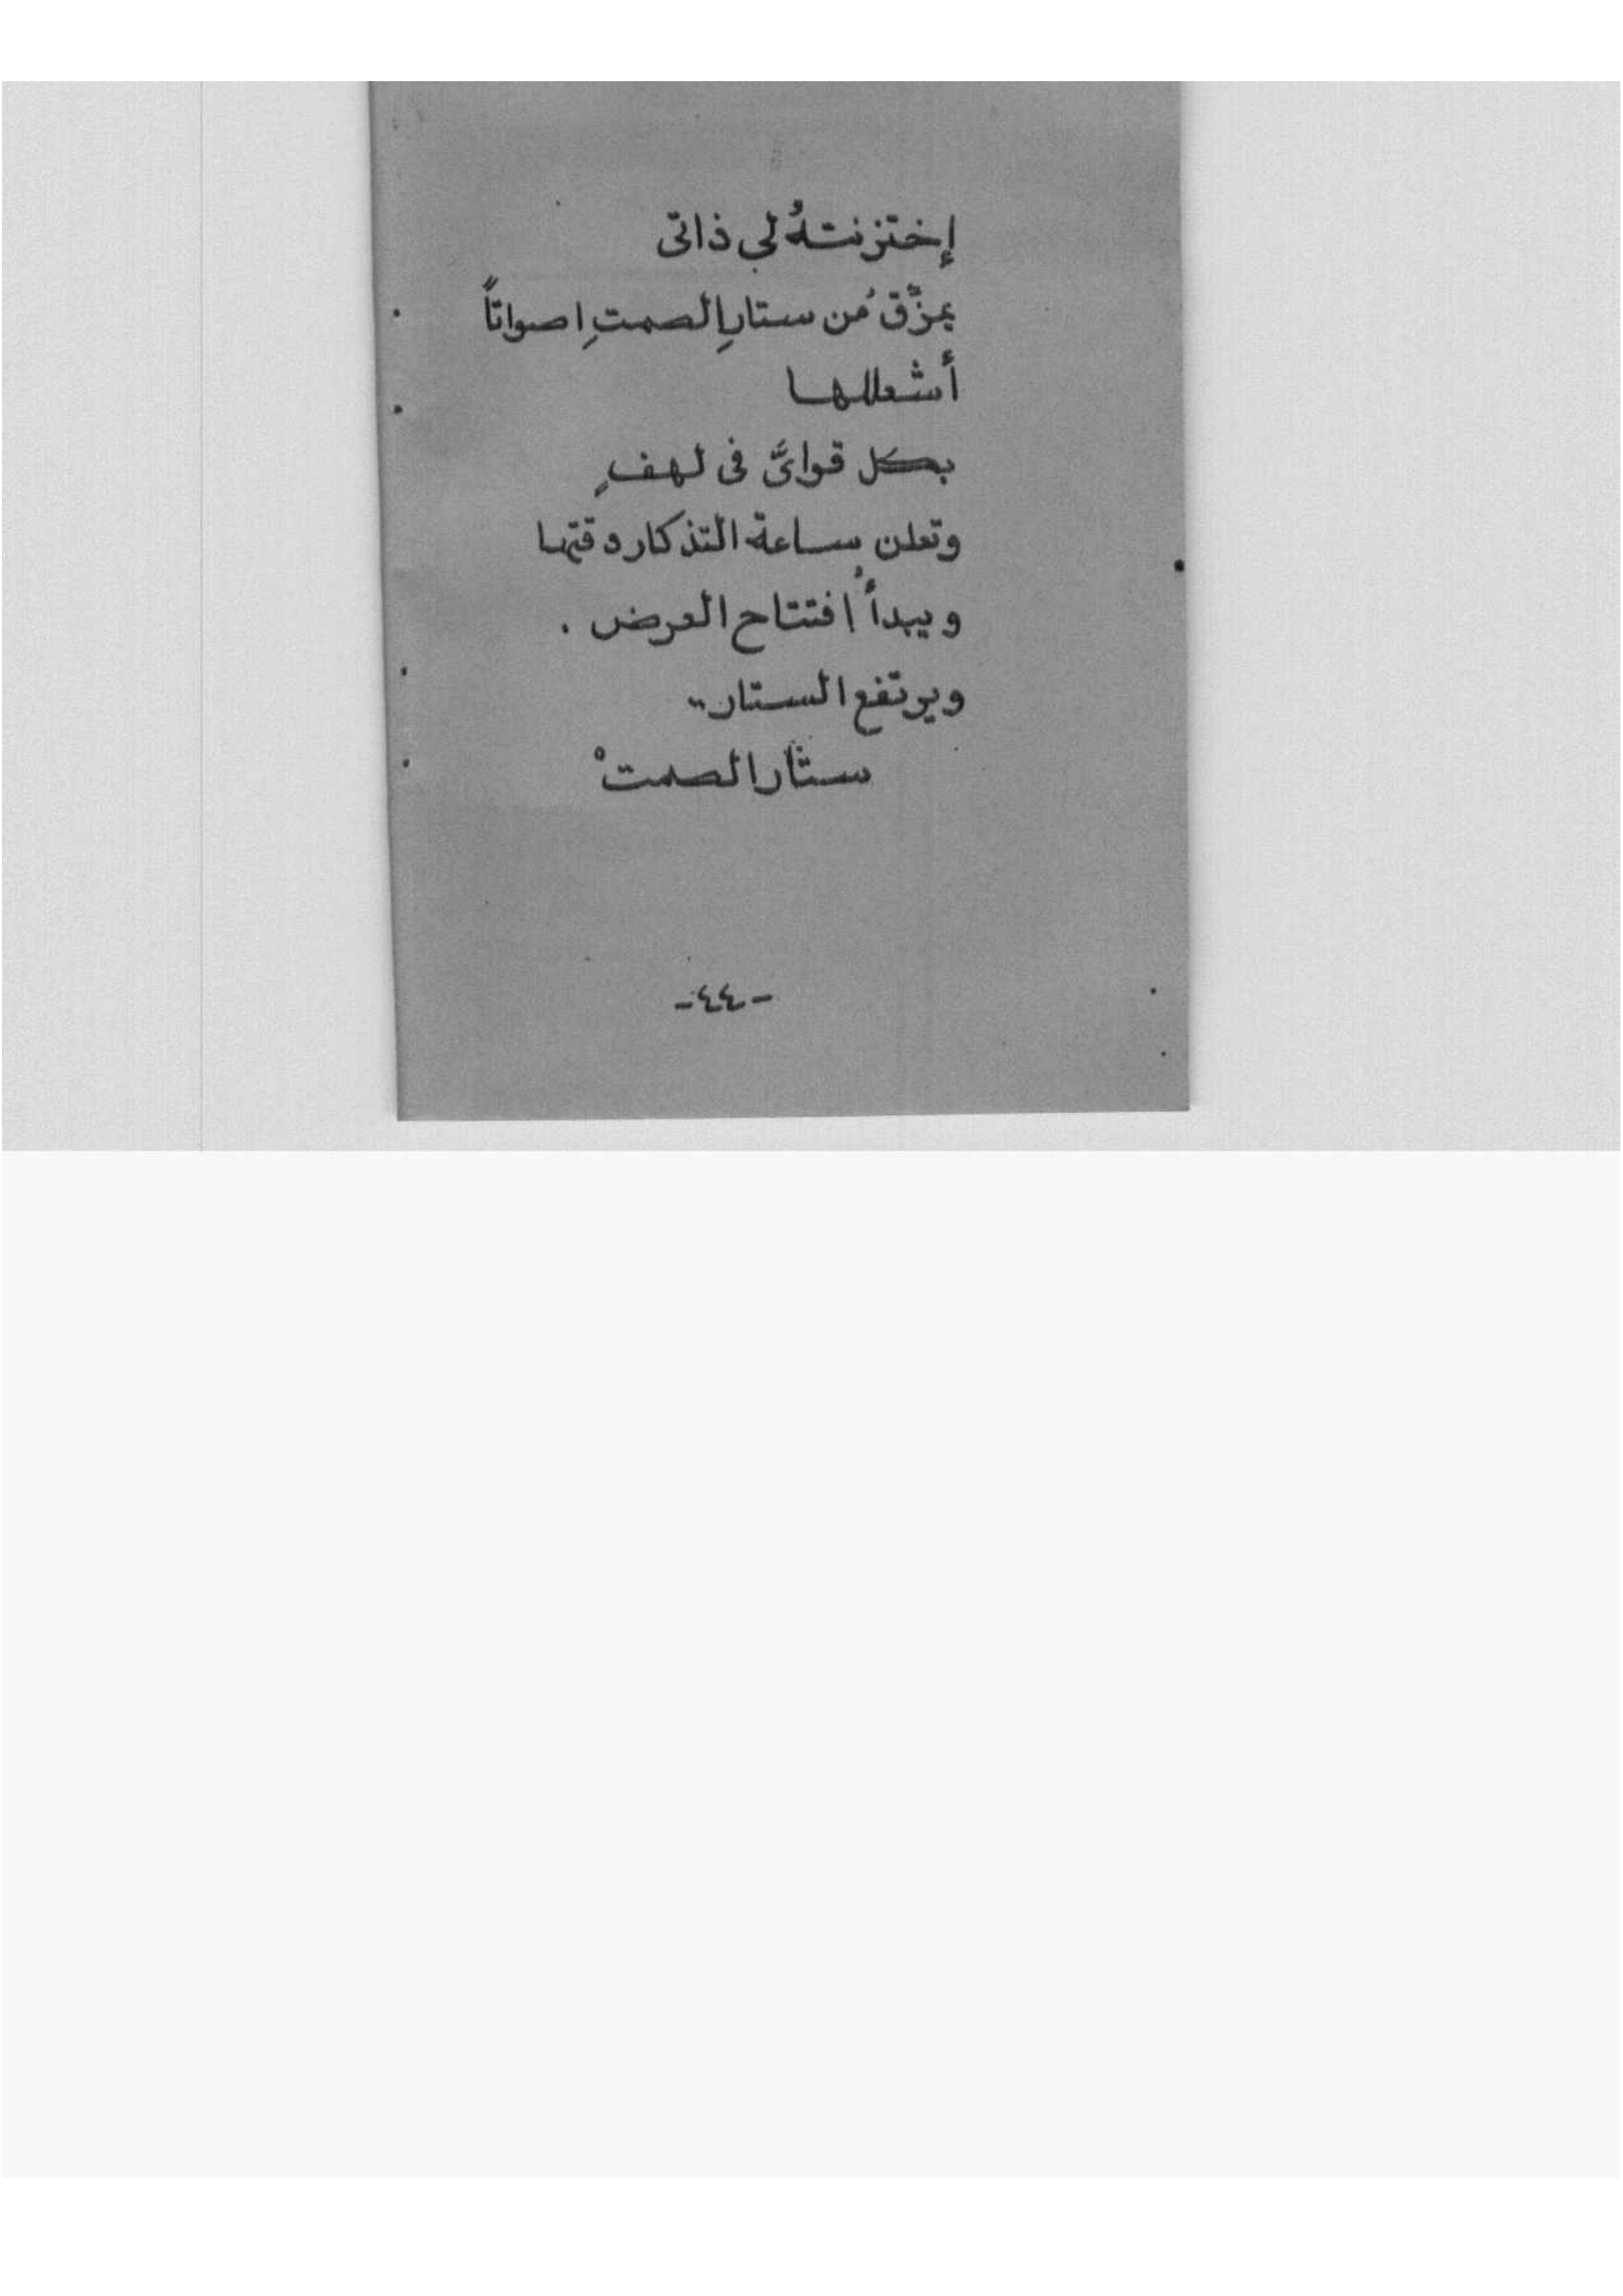 إختزنتهُ لي ذاتى
يمزّقُ من ستارِ الصمتِ اصواتاً
أشعللها
بكل قواىَّ فى لهفٍ
وتعلن ساعة التذكار دقتها
ويبدأُ افتتاح العرض .
ويرتفع الستار ..
ستار الصمتْ
-٤٤-